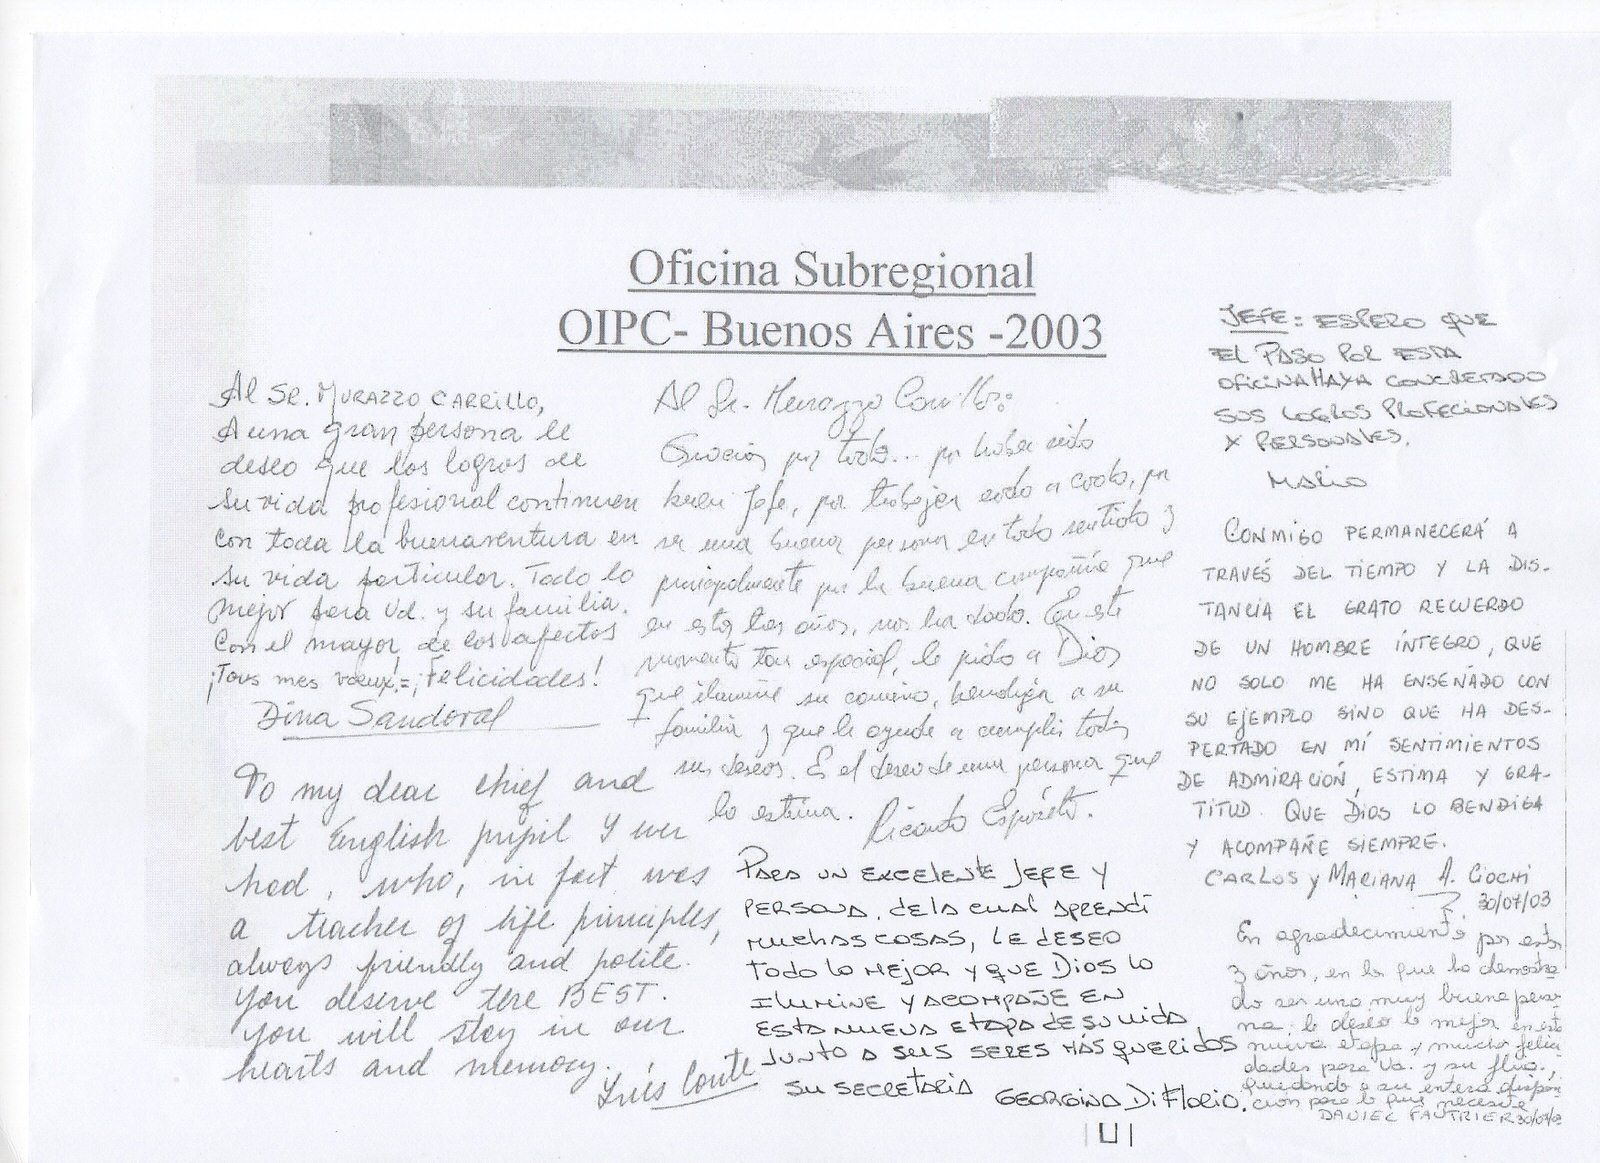 Oficina Subregional
OIPC- Buenos Aires -2003
Al Sr. MURAZZO CARRILLO,
A una gran persona le
deseo que los logros de
su vida profesional continuen
con toda la buenaventura en
su vida particular. Todo lo
mejor para Ud. y su familia.
Con el mayor de los afectos
¡Tous mes vœux! = ¡Felicidades!
Dina Sandoval
To my dear chief and
best English pupil I ever
had, who, in fact was
a teacher of life principles,
always friendly and polite.
You deserve the BEST.
You will stay in our
hearts and memory.
Inés Conte
Al Sr. Murazzo Carrillo:
Gracias por todo... por haber sido
buen Jefe, por trabajar codo a codo, por
ser una buena persona en todo sentido y
principalmente por la buena compañía que
en estos tres años, nos ha dado. En este
momento tan especial, le pido a Dios
que ilumine su camino, bendiga a su
familia y que le ayude a cumplir todos
sus deseos. Es el deseo de una persona que
lo estima.
Ricardo Espósito.
PARA UN EXCELENTE JEFE Y
PERSONA, DE LA CUAL APRENDÍ
MUCHAS COSAS, LE DESEO
TODO LO MEJOR Y QUE DIOS LO
ILUMINE Y ACOMPAÑE EN
ESTA NUEVA ETAPA DE SU VIDA
JUNTO A SUS SERES MÁS QUERIDOS
SU SECRETARIA
GEORGINA DI FLORIO.
JEFE: ESPERO QUE
EL PASO POR ESTA
OFICINA HAYA CONCRETADO
SUS LOGROS PROFECIONALES
Y PERSONALES.
MARIO
CONMIGO PERMANECERÁ A
TRAVÉS DEL TIEMPO Y LA DIS-
TANCIA EL GRATO RECUERDO
DE UN HOMBRE ÍNTEGRO, QUE
NO SOLO ME HA ENSEÑADO CON
SU EJEMPLO SINO QUE HA DES-
PERTADO EN MÍ SENTIMIENTOS
DE ADMIRACIÓN, ESTIMA Y GRA-
TITUD. QUE DIOS LO BENDIGA
Y ACOMPAÑE SIEMPRE.
CARLOS y MARIANA A. CIOCHI
30/07/03
En agradecimiento por estos
3 años, en los que ha demostra-
do ser una muy buena perso-
na, le deseo lo mejor en esta
nueva etapa y mucha felici-
dades para Ud. y su flia.,
quedando a su entera disposi-
ción para lo que necesite
DANIEL FAUTRIER 30/07/03